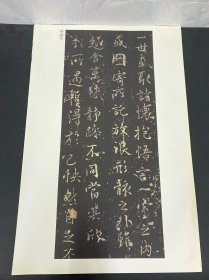 一世或取諸懷抱悟言一室之内
或因寄所託放浪形骸之外雖
趣舍萬殊静躁不同當其欣
於所遇暫得於己快然自足不